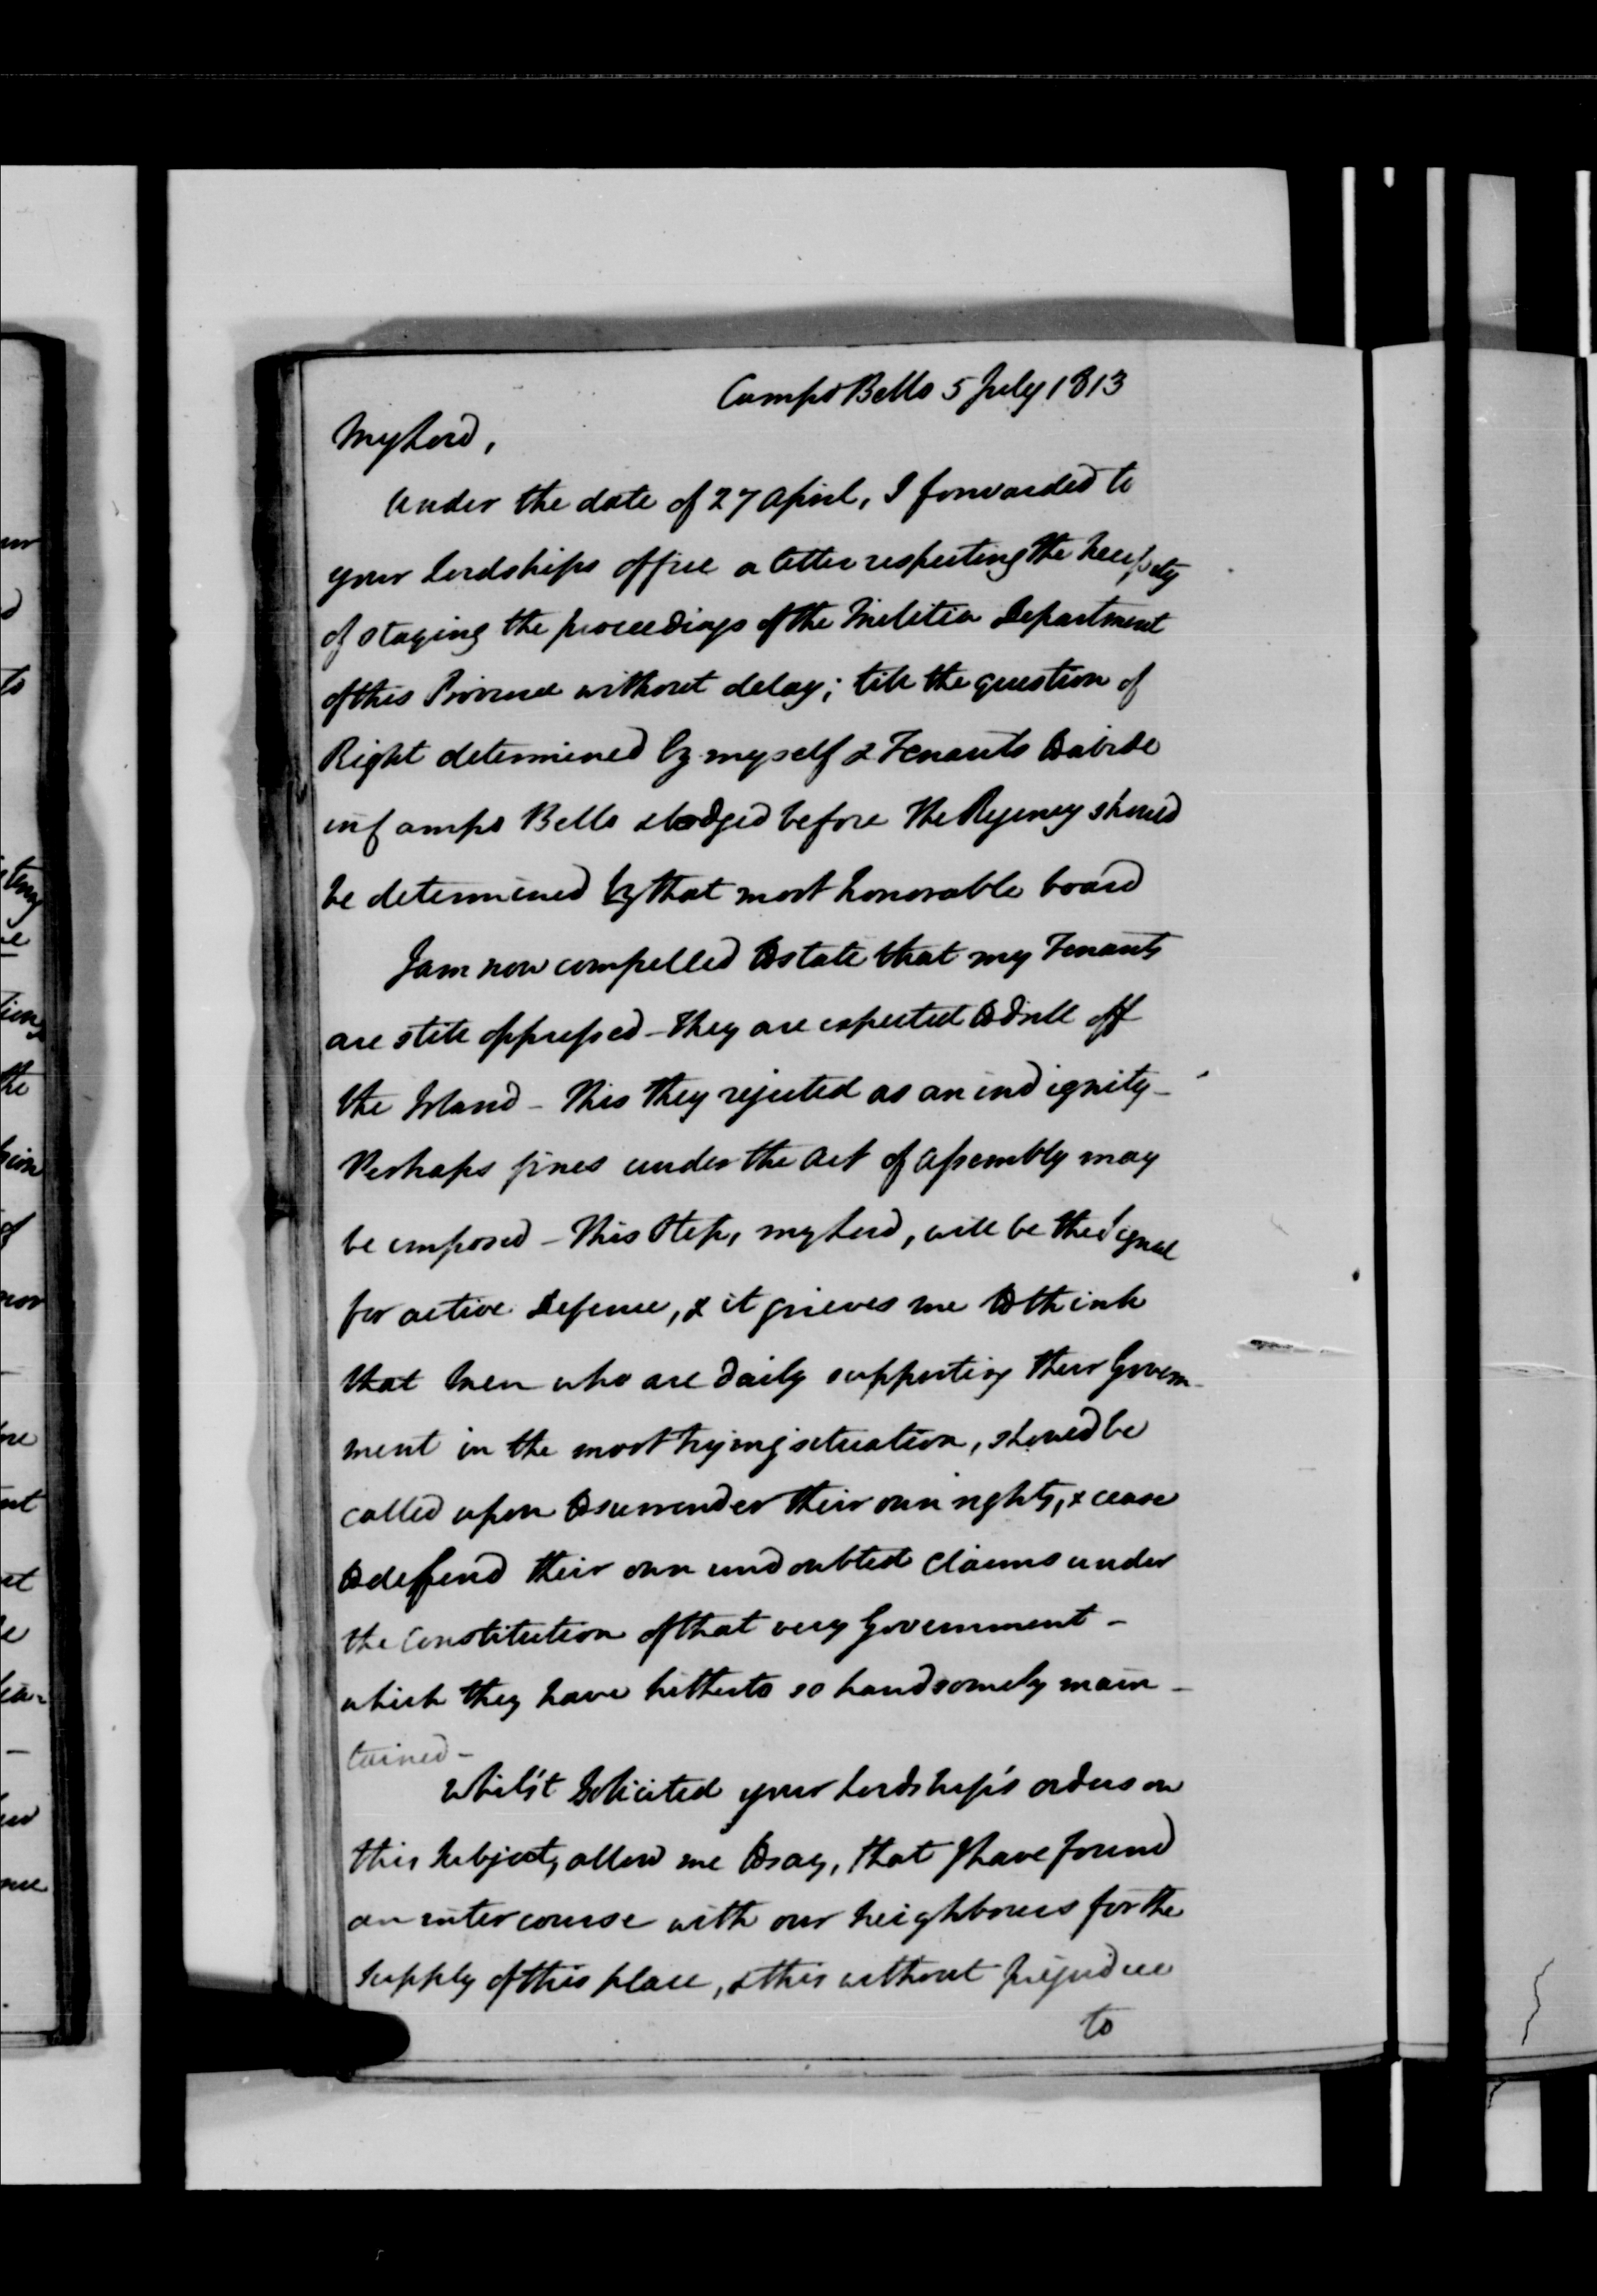 Campo Bello 5 July 1813
My Lord,
Under the date of 27 April, I forwarded to
your Lordships office a letter respecting the necessity
of staying the proceedings of the Militia Department
of this Province without delay; till the question of
Right determined by myself & Tenants to abide
in Campo Bello & lodged before the Regency should
be determined by that most honorable board
I am now compelled to state that my Tenants
are still oppressed - they are expected to drill off
the Island - This they rejected as an indignity -
Perhaps fines under the Act of Assembly may
be imposed - This Step, my Lord, will be the signal
for active defence, & it grieves me to think
that men who are daily supporting their Govern-
ment in the most trying situation, should be
called upon to surrender their own rights, & cease
to deffend their own undoubted claims under
the Constitution of that very Government -
which they have hitherto so handsomely main-
tained -
Whil'st solicited your Lordship's orders on
this subject, allow me to say, that I have found
an intercourse with our neighbours for the
supply of this place, & this without prejudice
to